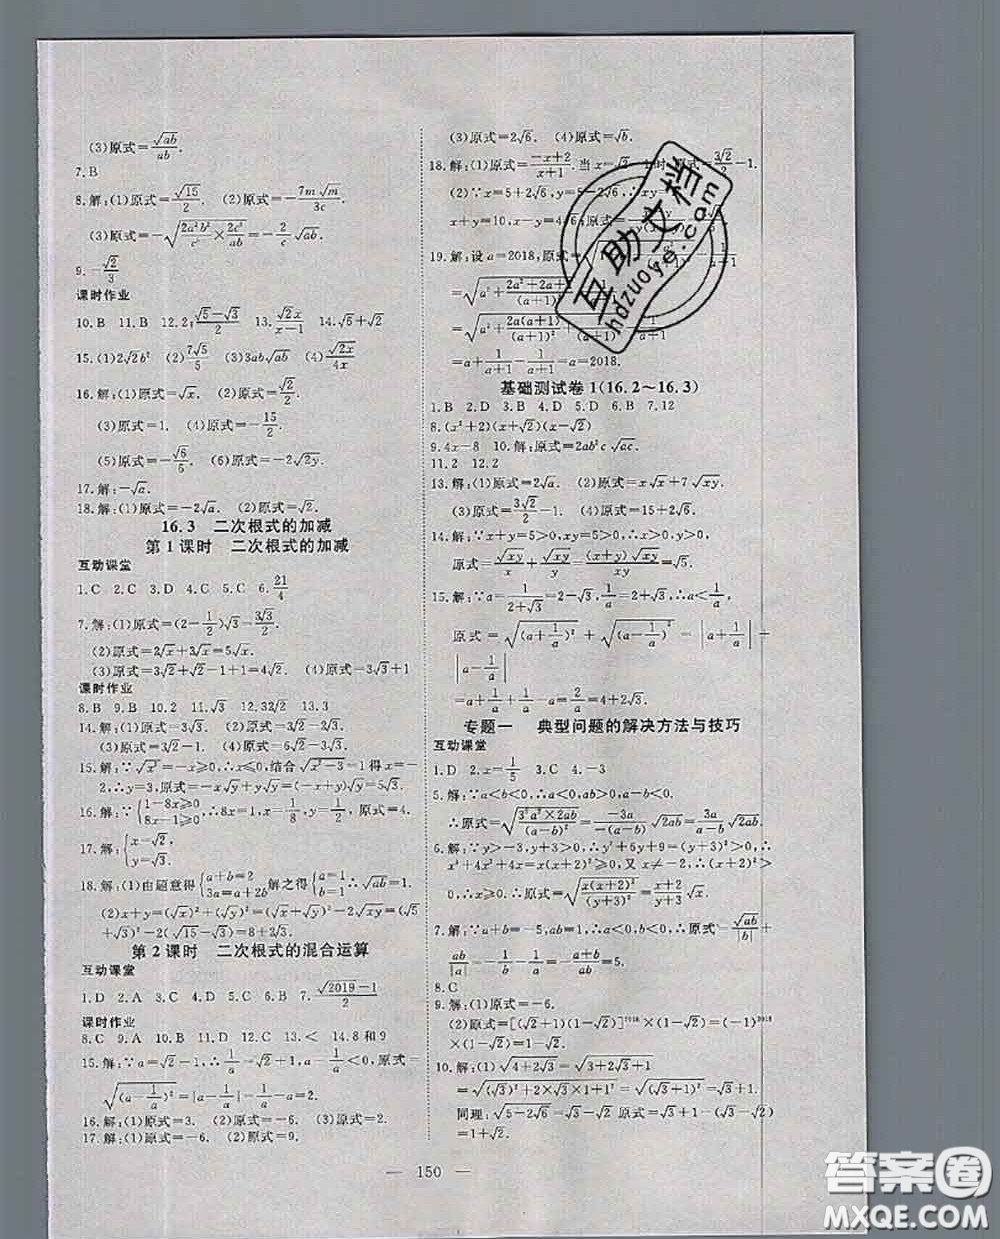 (3)原式=√ab/ab.
7.B
8.解:(1)原式=√15/2. (2)原式=-7m√m/3c.
(3)原式=-√(2a²b²/c³×2c²/ab)=-2/c√ab.
9.-√2/3
课时作业
10.B 11.B 12.2;(√5-√3)/2 13.√2x/(x-1) 14.√6+√2
15.(1)2√2b² (2)7√5/5 (3)3ab√ab (4)√2x/4x
16.解:(1)原式=√x. (2)原式=√2/2.
(3)原式=1. (4)原式=-15/2.
(5)原式=-√6/5. (6)原式=-2√2y.
17.解:-√a.
18.解:(1)原式=-2√a. (2)原式=√2.
16.3 二次根式的加减
第1课时 二次根式的加减
互动课堂
1.C 2.C 3.D 4.D 5.C 6.21/4
7.解:(1)原式=(2-1/2)√3=3√3/2.
(2)原式=2√x+3√x=5√x.
(3)原式=3√2+√2-1+1=4√2. (4)原式=3√3+1
课时作业
8.B 9.B 10.2 11.√3 12.3√2 13.3
14.解:(1)原式=3√2-2√3. (2)原式=√2-√3.
(3)原式=√2-2√3. (4)原式=6√3-2√2.
15.解:∵√x²=-x≥0,∴x<0,结合√(x²-3)=1得x=-
2,∴y=3,原式=-x√y+√y=(-x+√y)=5√3.
16.解:∵{1-8x≥0 8x-1≥0∴8x=1,x=1/8,y=1/2,原式=4.
17.解:{x=√2, y=√3.
18.解:(1)由题意得{a+b=2 3a=a+2b解之得{a=1 b=1∴√ab=1.
(2)x+y=(√x)²+(√y)²=(√x+√y)²-2√xy=(√5
+√3)²-2(√15-√3)=8+2√3.
第2课时 二次根式的混合运算
互动课堂
1.D 2.A 3.C 4.D 5.C 6.B 7.(√2019-1)/2
课时作业
8.C 9.A 10.B 11.D 12.C 13.< 14.8和9
15.解:∵a=√2-1,∴1/a=√2+1,a-1/a<0,原式=
√(a-1/a)²=|a-1/a|=1/a-a=2.
16.解:(1)原式=3. (2)原式=4√3.
17.解:(1)原式=-6. (2)原式=9.
(3)原式=2√6. (4)原式=√b.
18.解:(1)原式=(-x+2)/(x+1).当x=√2-1时,原式=3√2/2-1.
(2)∵x=5+2√6,y=5-2√6,∴xy=
x+y=10,x-y=4√6,原式=
19.解:设a=2018,原式=
=√(a²+(2a²+2a+1)/(a+1)²)
=√(a²+2a(a+1)/(a+1)²
=a+1/(a+1)-1/(a+1)=a=2018.
基础测试卷1(16.2~16.3)
1.B 2.D 3.B 4.D 5.D 6.B 7.12
8.(x²+2)(x+√2)(x-√2)
9.4x-8 10.解:原式=2ab²c√ac.
11.2 12.2
13.解:(1)原式=10. (2)原式=x√x+7√xy.
(3)原式=3√2/2-1. (4)原式=15+2√6.
14.解:∵x+y=5>0,xy=7>0,∴x>0,y>0.
原式=√xy/x+√xy/y=(x+y)√xy/xy=5√7/7.
15.解:∵a=1/(2+√3)=2-√3,1/a=2+√3,∴a<1/a,
原式=√(a+1/a)²+√(a-1/a)²=|a+1/a|+
|a-1/a|
=a+1/a+1/a-a=2/a=4+2√3.
专题一 典型问题的解决方法与技巧
互动课堂
1.D 2.x=1/5 3.C 4.-3
5.解:∵a<b<0,∴a²>0,b<0,a-b<0.
∴原式=√(3²a²×2ab/(a-b)²)=-3a/-(a-b)√2ab=3a/(a-b)√2ab.
∵y>-3,y+3>0,∴y²+6y+9=(y+3)²>0,∴
x³+4x²+4x=x(x+2)²≥0,又x≠-2,∴(x+2)²>
0,∴x≥0.∴原式=√(x(x+2)²/(y+3)²)=(x+2)/(y+3)√x.
7.解:∵a+b=-5,ab=1>0,∴a<0,b<0,∴原式=√ab/|b|+
√ab/|a|=-1/b-1/a=-(a+b)/ab=5.
8.C
9.解:(1)原式=-6.
10.解:(1)√(4+2√3)=√(3+2√3+1)
=√((√3)²+2×√3×1+1²)=√(√3+1)²=√3+1
同理:√(5-2√6)=√3-√2 原式=√3+1-√3+√2
=1+√2.
— 150 —
互助文档
hdzuoye.com
答案圈
MXQE.COM